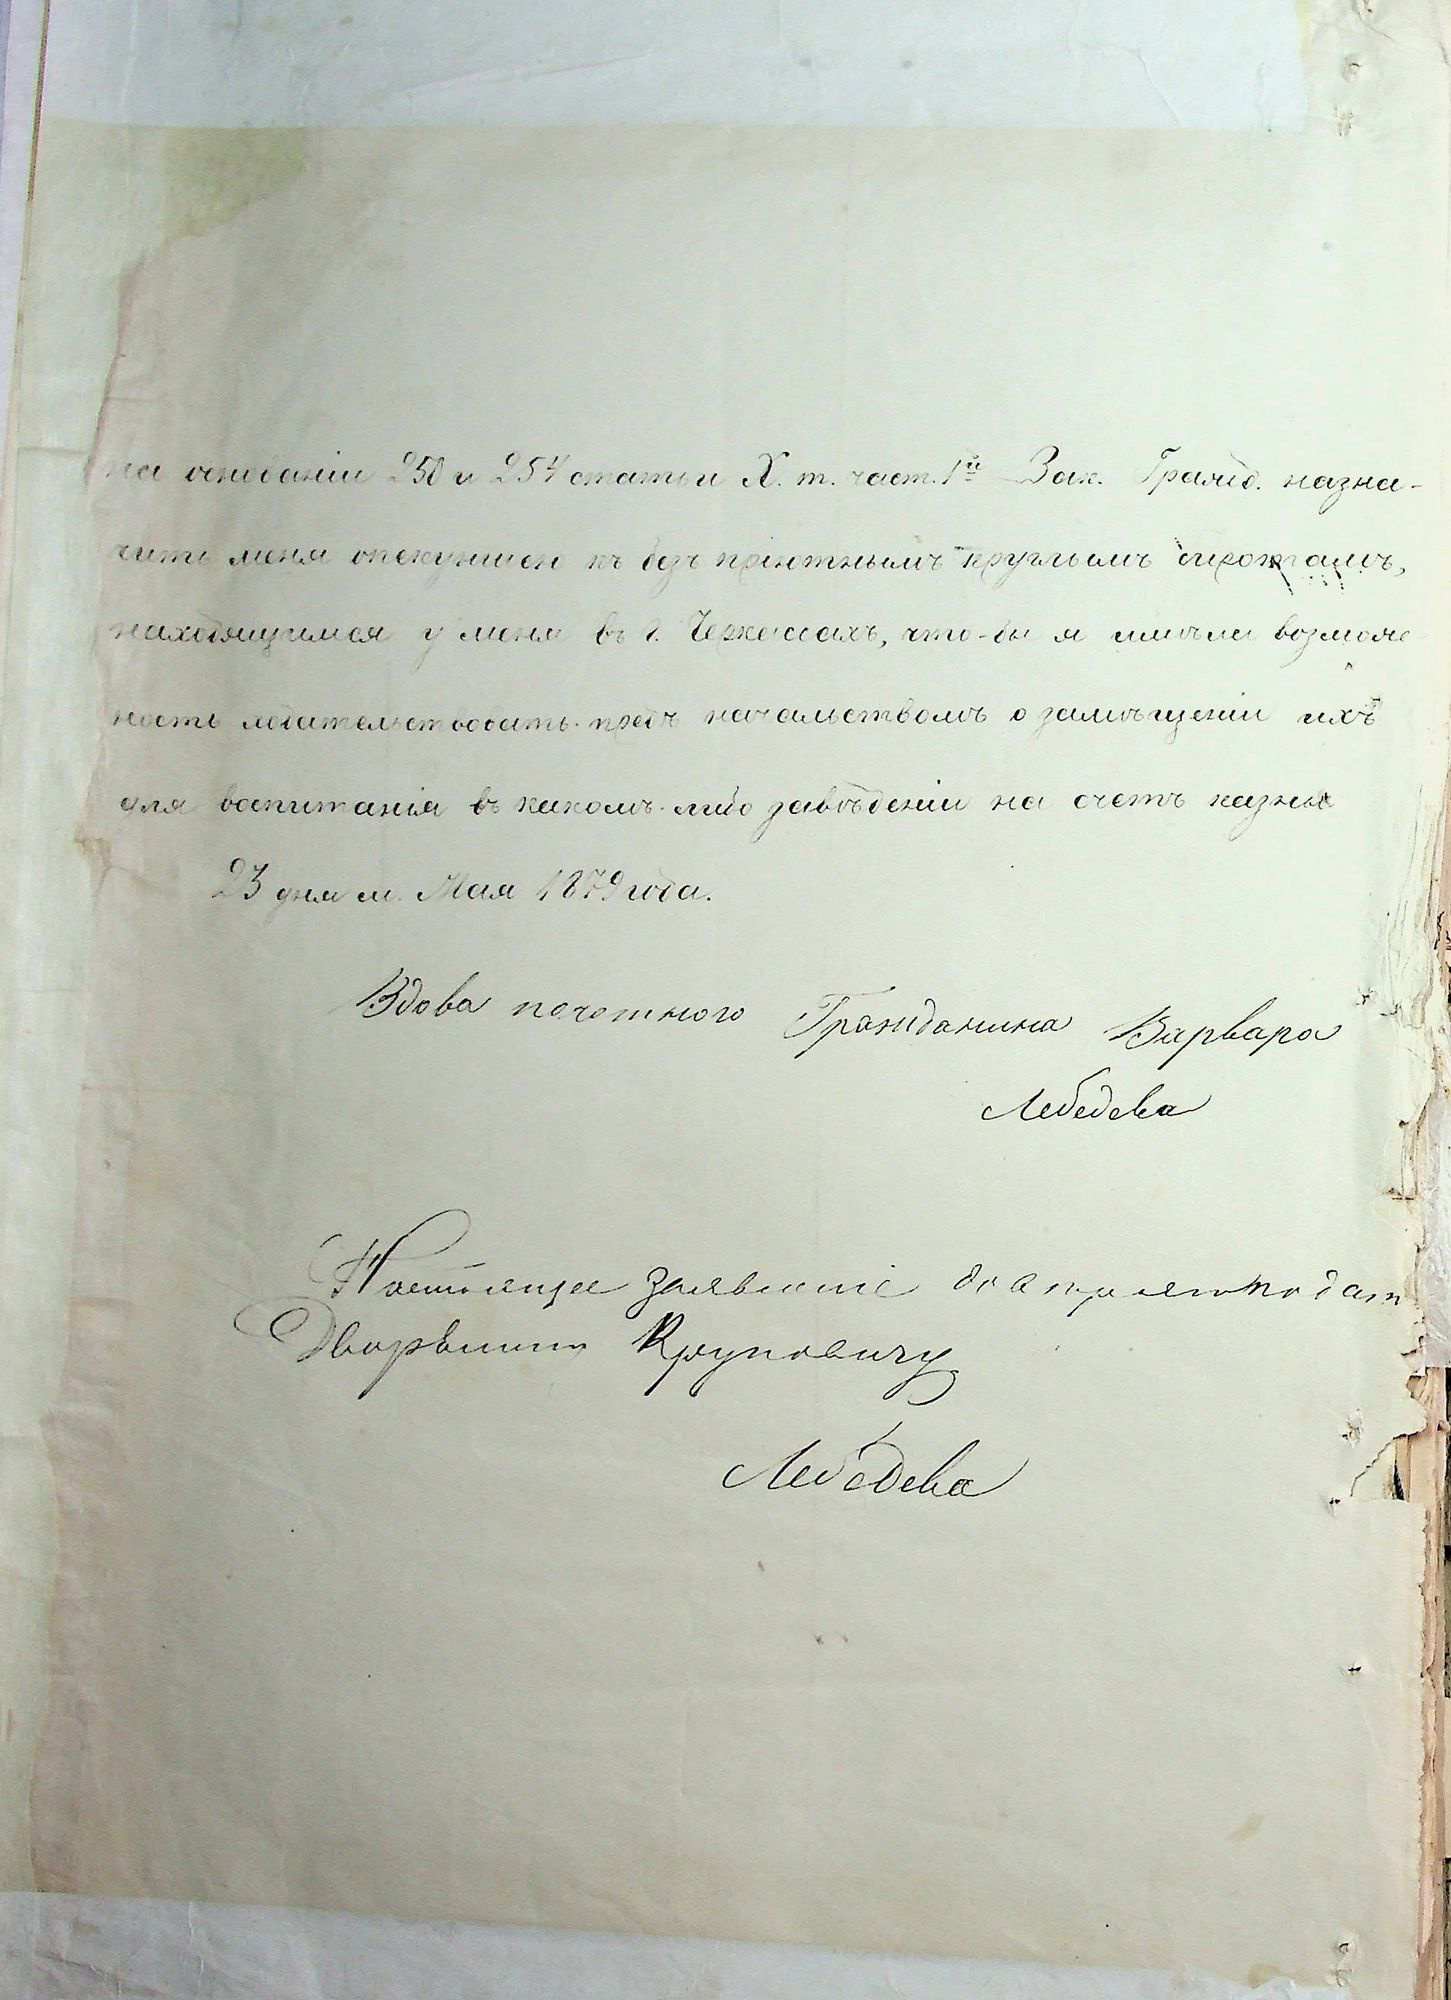 на основаніи 250 и 254 статьи X. т. част. 1й Зак. Гражд. назна-
чить меня опекуншею къ безъ пріютнымъ круглымъ сиротамъ,
находящимся у меня въ г. Черкассахъ, что-бы я имѣла возмож-
ность ходательствовать предъ начальствомъ о замѣщеніи ихъ
для воспитанія въ какомъ-либо завѣденіи на счетъ казны
23 дня м. Мая 1879 года.
Вдова почотного Гражданина Варвара
Лебедева
Настоящее заявленіе довѣряю подат
Дворѣнину Круповичу
Лебедева